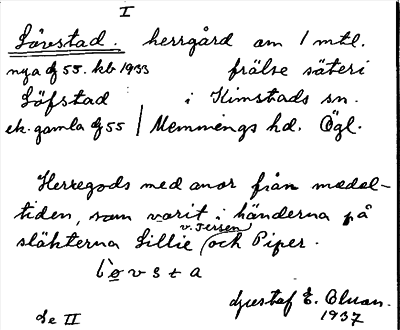 I
Lövestad. herrgård om 1 mtl.
nya df 55. kb 1933 frälse säteri
Löfstad i Kimstads sn.
ek. gamla df 55 / Memmings hd. Ögl.
Herregods med anor från medel-
tiden, som varit i händerna på
v. Fersen
släkterna Lillie och Piper.
Gustaf E. Oluan.
1937
Se II